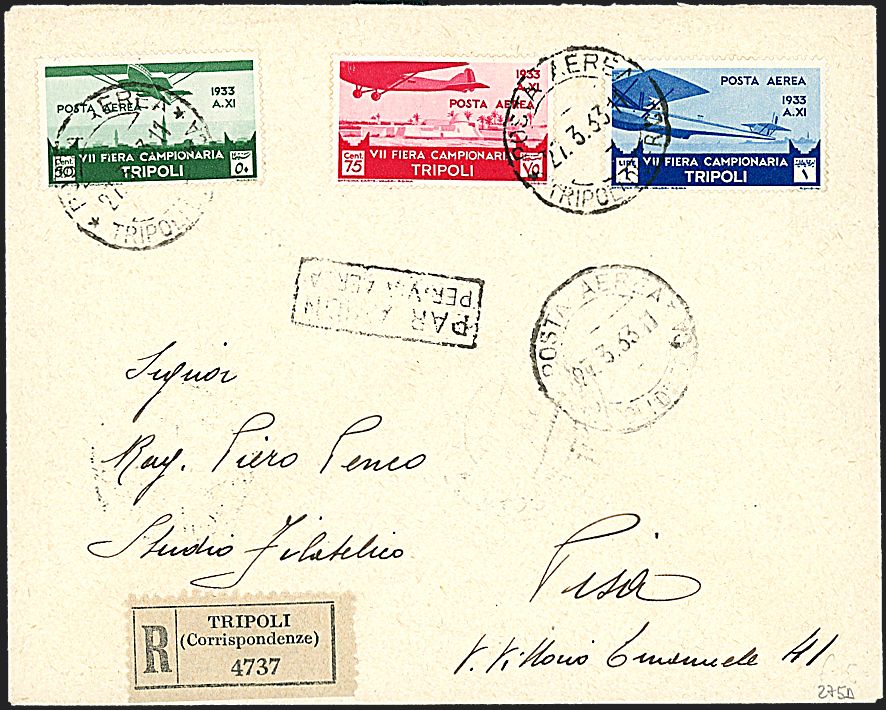 POSTA AEREA
1933
A.XI
VII FIERA CAMPIONARIA
TRIPOLI
Cent.
50
٥٠
1933
A.XI
POSTA AEREA
VII FIERA CAMPIONARIA
TRIPOLI
Cent.
75
٧٥
POSTA AEREA
1933
A.XI
VII FIERA CAMPIONARIA
TRIPOLI
LIRE
١
POSTA AEREA
27.3.33.11
TRIPOLI
PAR AVION
PER VIA AEREA
POSTA AEREA
27.3.33.11
Signor
Rag. Piero Penco
Studio Filatelico
Pisa
V. Vittorio Emanuele 41
R
TRIPOLI
(Corrispondenze)
4737
275D